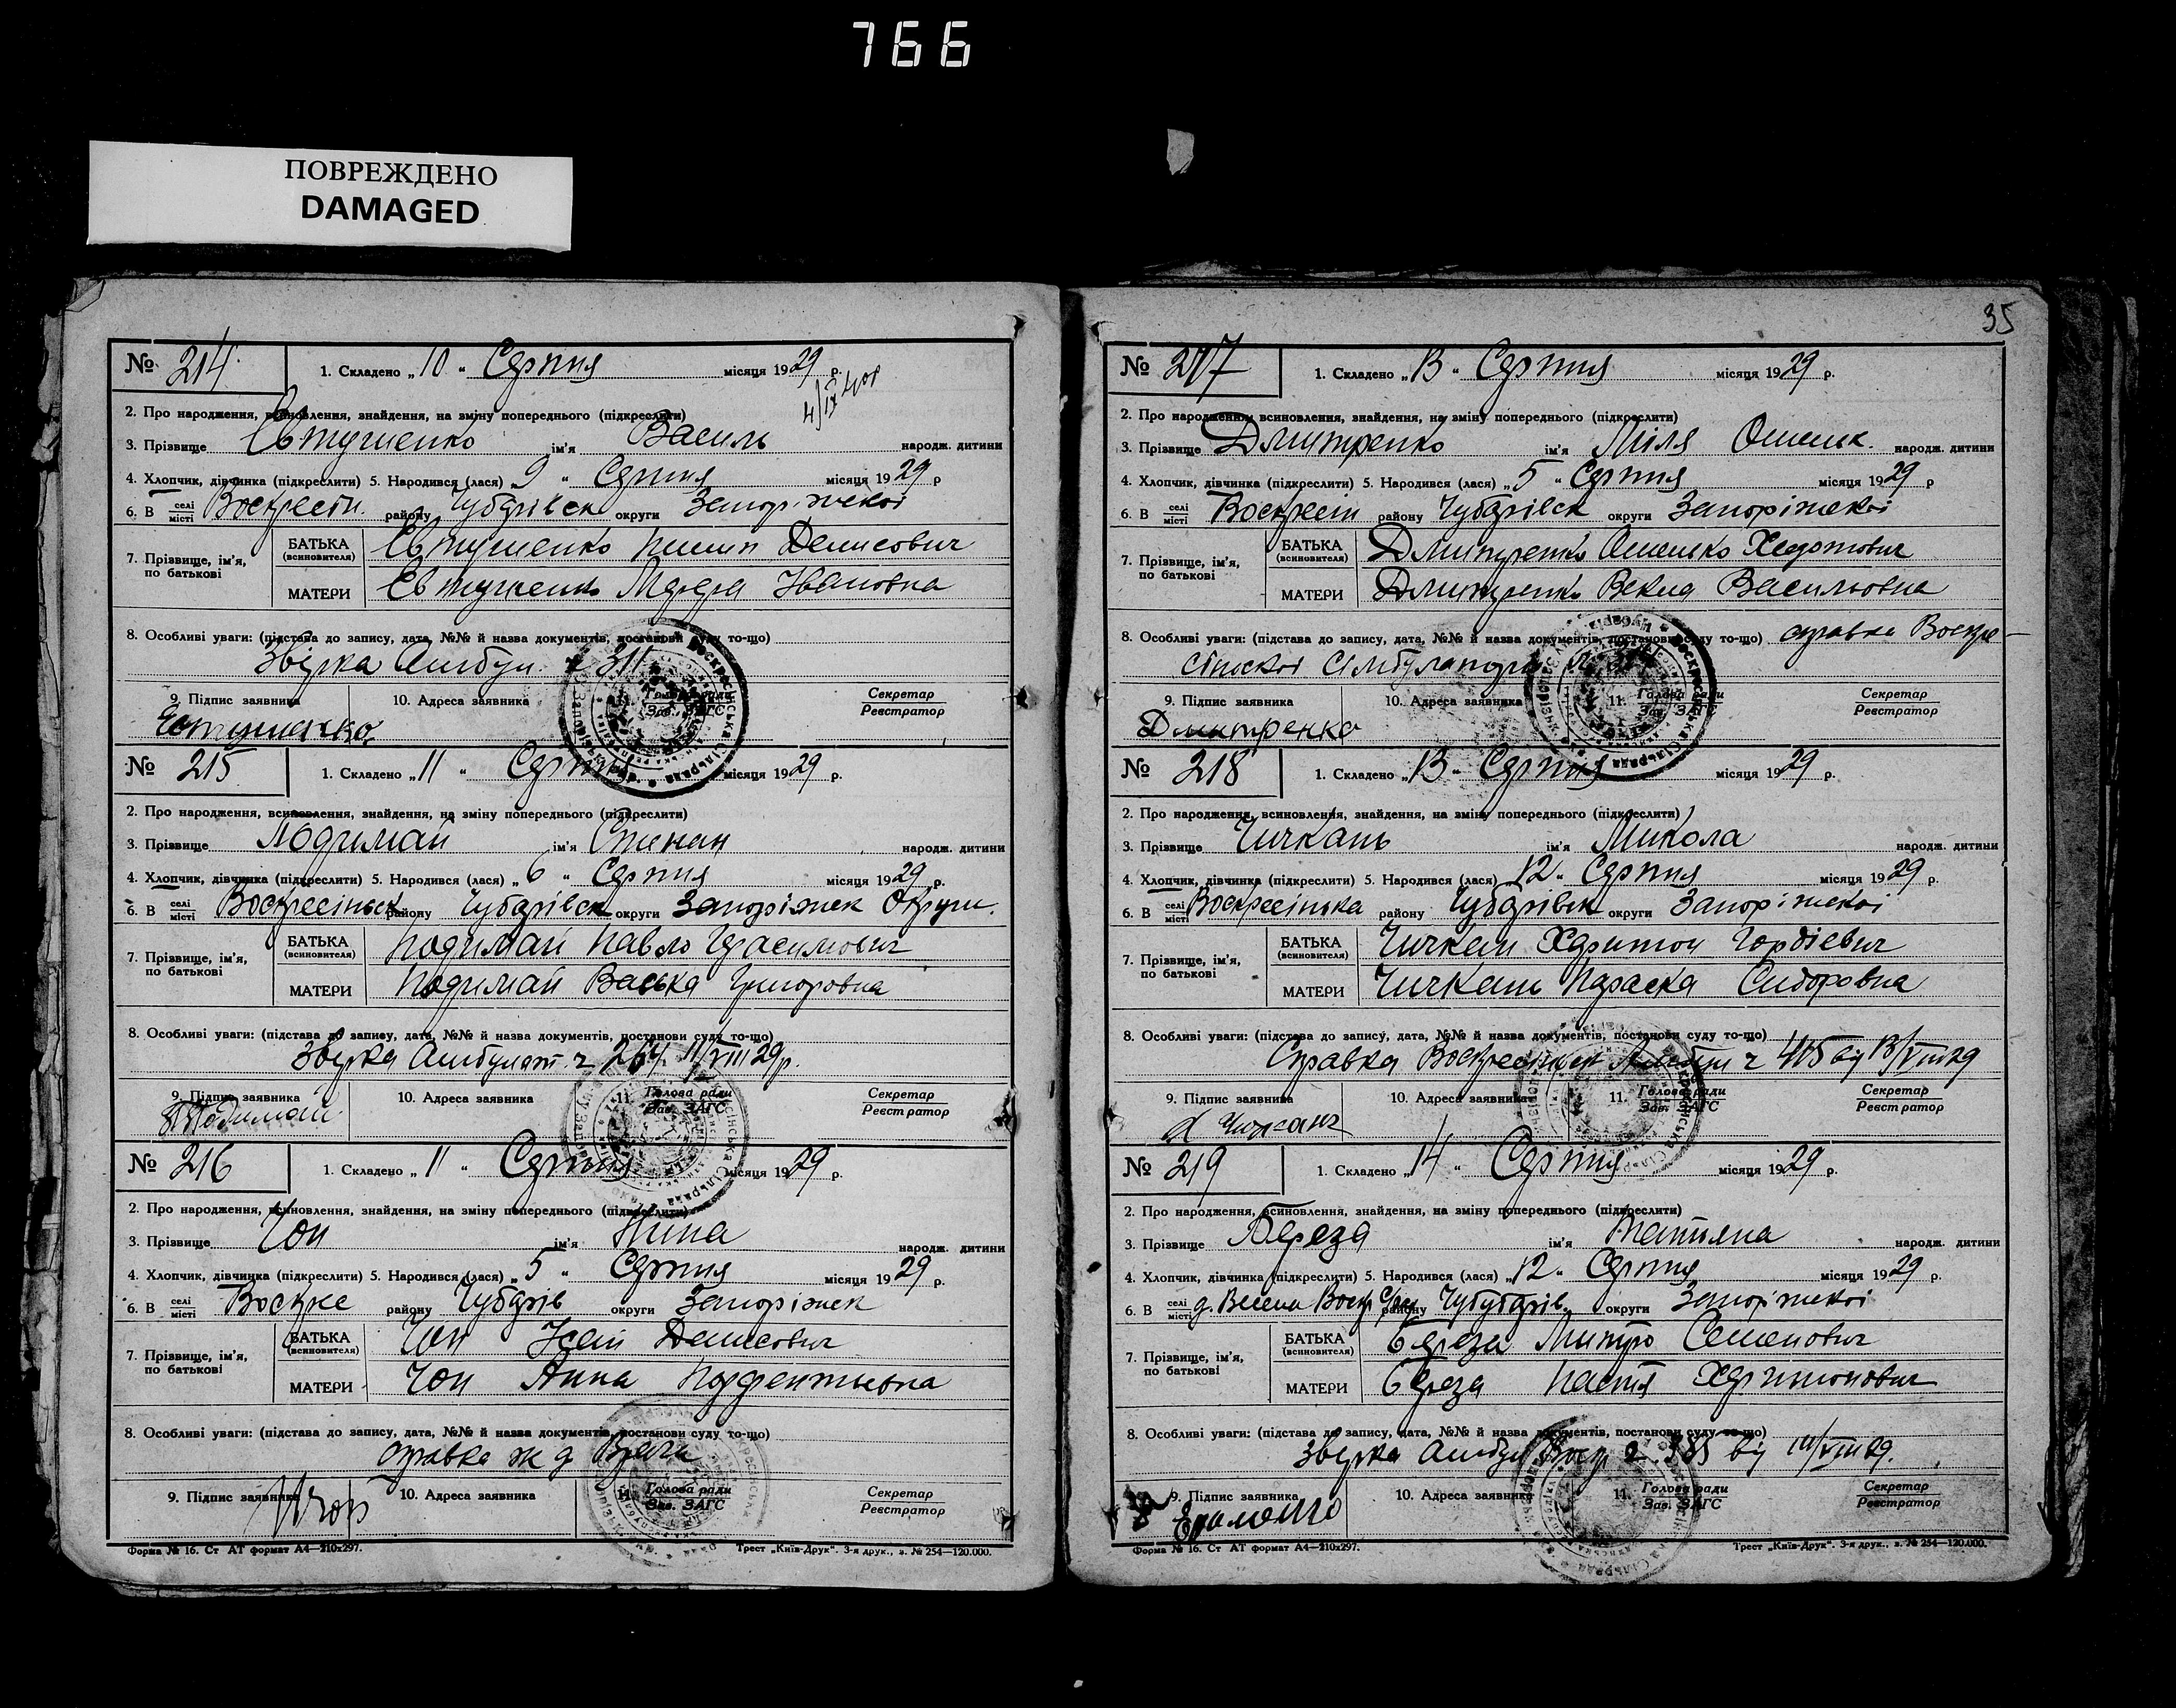 766
ПОВРЕЖДЕНО
DAMAGED
№ 214 1. Складено „10“ Серпня місяця 1929 р.
2. Про народження, всиновлення, знайдення, на зміну попереднього (підкреслити)
3. Прізвище Євтушенко ім'я Василь народж. дитини
4. Хлопчик, дівчинка (підкреслити) 5. Народився (лася) „9“ Серпня місяця 1929 р
6. В селі місті Воскресен. району Чубарівськ округи Запоріжської
7. Прізвище, ім'я, по батькові БАТЬКА (всиновителя) Євтушенко Пилип Денисович
МАТЕРИ Євтушенко Мария Івановна
8. Особливі уваги: (підстава до запису, дата, №№ й назва документів, постанови суду то-що)
Звірка Амбул. 311
9. Підпис заявника 10. Адреса заявника 11. Голова ради Зав. ЗАГС Секретар Реєстратор
№ 215 1. Складено „11“ Серпня місяця 1929 р.
2. Про народження, всиновлення, знайдення, на зміну попереднього (підкреслити)
3. Прізвище Подимай ім'я Степан народж. дитини
4. Хлопчик, дівчинка (підкреслити) 5. Народився (лася) „6“ Серпня місяця 1929 р.
6. В селі місті Воскресінськ району Чубарівск округи Запоріжск Округи.
7. Прізвище, ім'я, по батькові БАТЬКА (всиновителя) Подимай Павло Герасимович
МАТЕРИ Подимай Васька Григоровна
8. Особливі уваги: (підстава до запису, дата, №№ й назва документів, постанови суду то-що)
Звірка Амбулат. ч 264 11/VIII 29 р.
9. Підпис заявника 10. Адреса заявника 11. Голова ради Зав. ЗАГС Секретар Реєстратор
Подимай
№ 216 1. Складено „11“ Серпня місяця 1929 р.
2. Про народження, всиновлення, знайдення, на зміну попереднього (підкреслити)
3. Прізвище Чоп ім'я Нина народж. дитини
4. Хлопчик, дівчинка (підкреслити) 5. Народився (лася) „5“ Серпня місяця 1929 р.
6. В селі місті Воскре району Чубарів округи Запоріжск
7. Прізвище, ім'я, по батькові БАТЬКА (всиновителя) Чоп Денисович
МАТЕРИ Чоп Анна Парфентьевна
8. Особливі уваги: (підстава до запису, дата, №№ й назва документів, постанови суду то-що)
справка ж д Врача
9. Підпис заявника 10. Адреса заявника 11. Голова ради Зав. ЗАГС Секретар Реєстратор
Форма № 16. Ст АТ формат А4—210х297. Трест „Київ-Друк“. 3-я друк., з. № 254—120.000.
35
№ 217 1. Складено „13“ Серпня місяця 1929 р.
2. Про народження, всиновлення, знайдення, на зміну попереднього (підкреслити)
3. Прізвище Дмитренко ім'я Міля народж. дитини
4. Хлопчик, дівчинка (підкреслити) 5. Народився (лася) „5“ Серпня місяця 1929 р
6. В селі місті Воскресін району Чубарівск округи Запоріжскої
7. Прізвище, ім'я, по батькові БАТЬКА (всиновителя) Дмитренко Омелько Хедотович
МАТЕРИ Дмитренко Векла Васильовна
8. Особливі уваги: (підстава до запису, дата, №№ й назва документів, постанови суду то-що) справка Воскре-
сінской
9. Підпис заявника 10. Адреса заявника 11. Голова ради Зав. ЗАГС Секретар Реєстратор
Дмитренко
№ 218 1. Складено „13“ Серпня місяця 1929 р.
2. Про народження, всиновлення, знайдення, на зміну попереднього (підкреслити)
3. Прізвище Чичкань ім'я Микола народж. дитини
4. Хлопчик, дівчинка (підкреслити) 5. Народився (лася) „12“ Серпня місяця 1929 р.
6. В селі місті Воскресінька району Чубарівск округи Запоріжскої
7. Прізвище, ім'я, по батькові БАТЬКА (всиновителя) Чичкань Харитон Гордієвич
МАТЕРИ Чичкань Параска Сидоровна
8. Особливі уваги: (підстава до запису, дата, №№ й назва документів, постанови суду то-що)
Справка Воскресінськ Амбул ч 415 від 13/VIII 29
9. Підпис заявника 10. Адреса заявника 11. Голова ради Зав. ЗАГС Секретар Реєстратор
№ 219 1. Складено „14“ Серпня місяця 1929 р.
2. Про народження, всиновлення, знайдення, на зміну попереднього (підкреслити)
3. Прізвище Береза ім'я Татьяна народж. дитини
4. Хлопчик, дівчинка (підкреслити) 5. Народився (лася) „12“ Серпня місяця 1929 р.
6. В селі місті району округи Запоріжскої
7. Прізвище, ім'я, по батькові БАТЬКА (всиновителя) Береза Митро Семенович
МАТЕРИ Береза Настя Харитонович
8. Особливі уваги: (підстава до запису, дата, №№ й назва документів, постанови суду то-що)
Звірка Амбул Воскр ч. 385 від 14/VIII 29.
9. Підпис заявника 10. Адреса заявника 11. Голова ради Зав. ЗАГС Секретар Реєстратор
Форма № 16. Ст АТ формат А4—210х297. Трест „Київ-Друк“. 3-я друк., з. № 254—120.000.